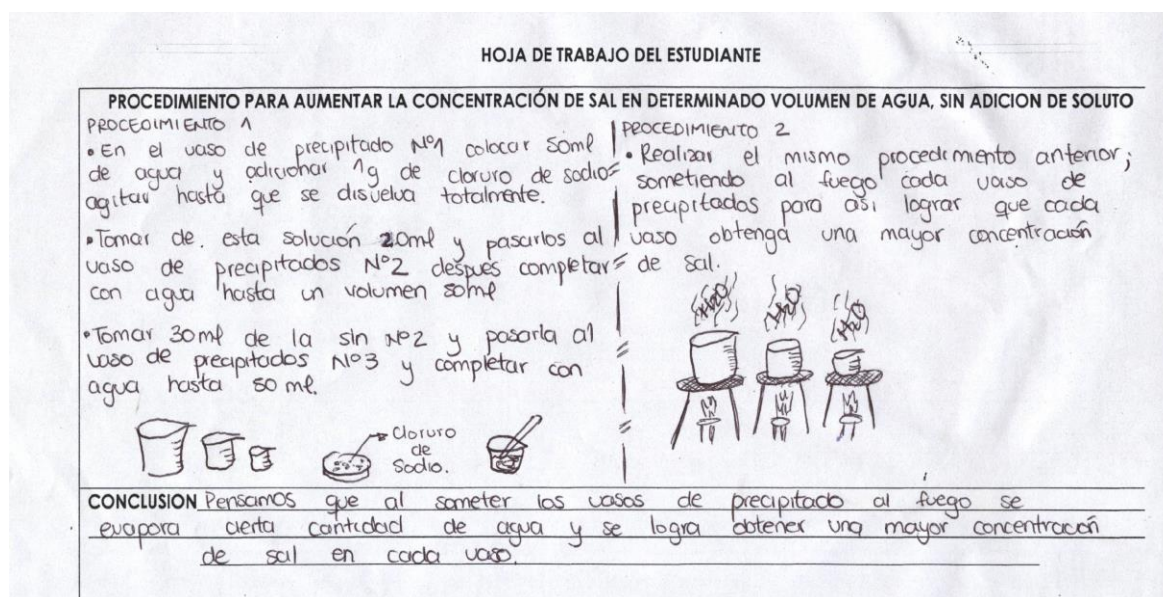 HOJA DE TRABAJO DEL ESTUDIANTE
PROCEDIMIENTO PARA AUMENTAR LA CONCENTRACIÓN DE SAL EN DETERMINADO VOLUMEN DE AGUA, SIN ADICION DE SOLUTO
PROCEDIMIENTO 1
• En el vaso de precipitado Nº1 colocar 50ml
de agua y adicionar 1g de cloruro de sodio
agitar hasta que se disuelva totalmente.
• Tomar de. esta solución 20ml y pasarlos al
vaso de precipitados Nº2 después completar
con agua hasta un volumen 50ml
• Tomar 30ml de la sln Nº2 y pasarla al
vaso de precipitados Nº3 y completar con
agua hasta 50 ml.
Cloruro
de
Sodio.
PROCEDIMIENTO 2
• Realizar el mismo procedimiento anterior;
sometiendo al fuego cada vaso de
precipitados para así lograr que cada
vaso obtenga una mayor concentración
de sal.
H2O H2O H2O
CONCLUSION Pensamos que al someter los vasos de precipitado al fuego se
evapora cierta cantidad de agua y se logra obtener una mayor concentración
de sal en cada vaso.